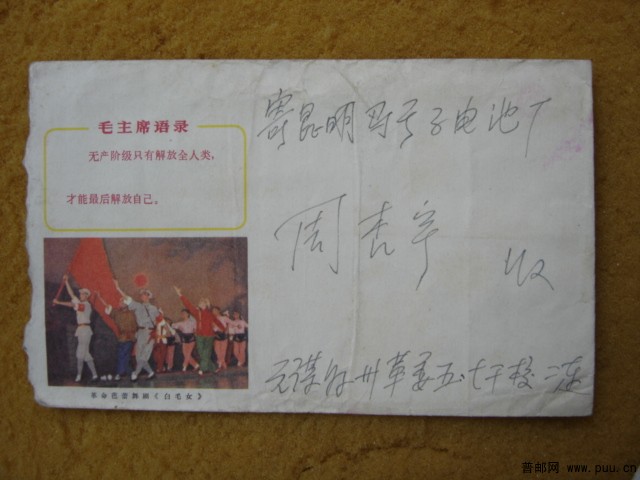 毛主席语录
无产阶级只有解放全人类，
才能最后解放自己。
革命芭蕾舞剧《白毛女》
寄昆明马子电池厂
周 收
元谋 州革委五七干校二连
普邮网 www.puu.cn